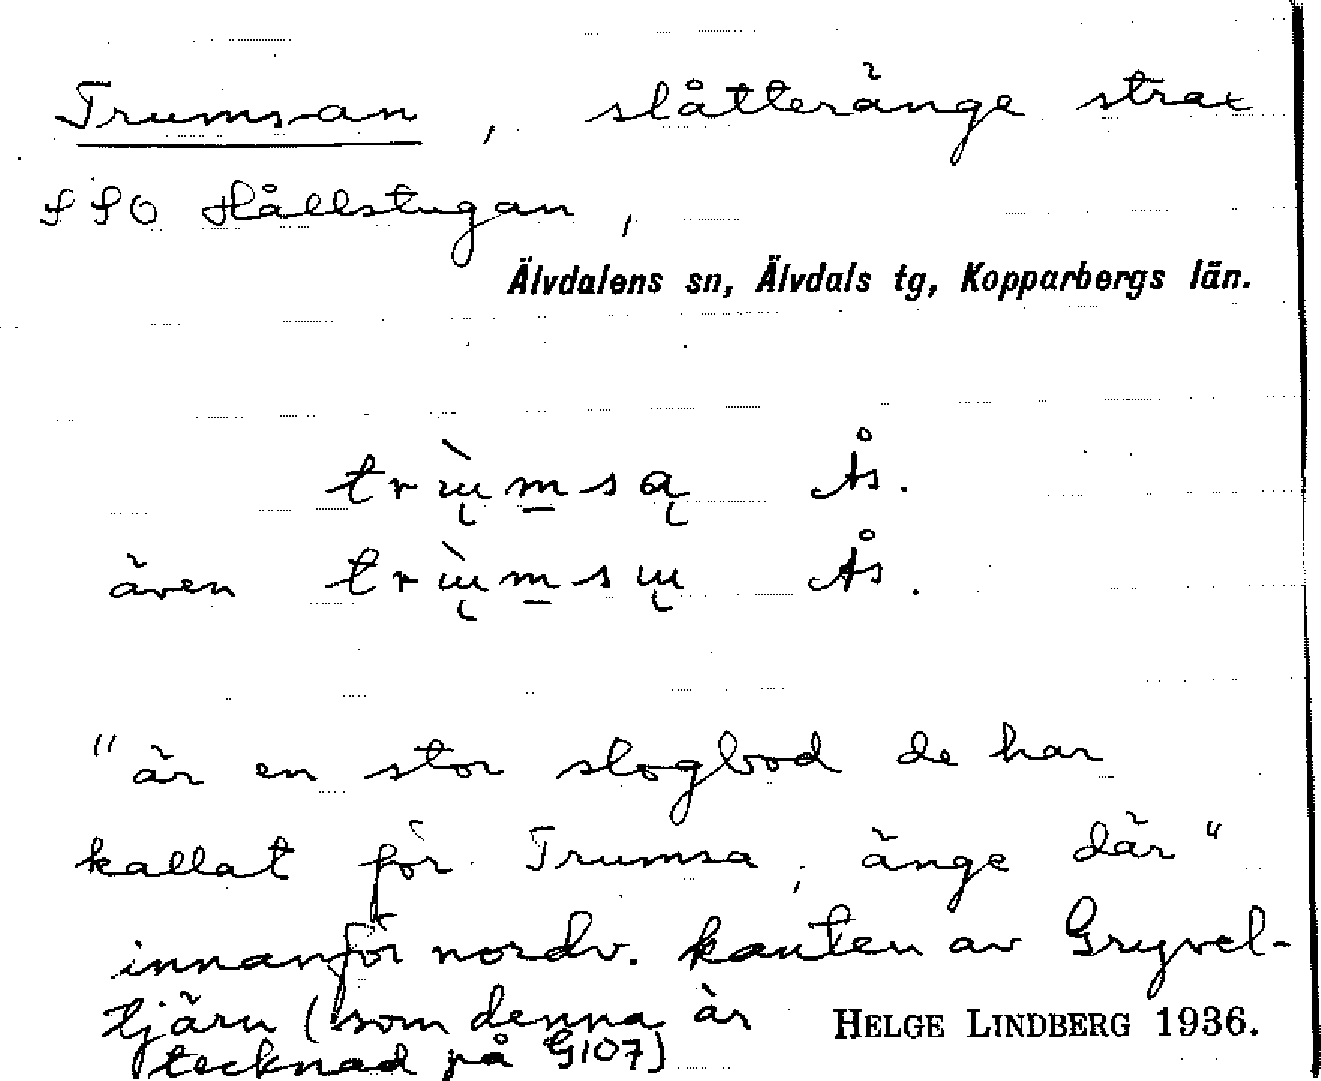 Trumsan, slåtteränge strax
SSO Hållstugan,
Älvdalens sn, Älvdals tg, Kopparbergs län.
Ås.
även Ås.
"är en stor slogbod de har
kallat för Trumsa, änge där"
innanför nordv. kanten av Gryvel-
tjärn (som denna är
HELGE LINDBERG 1936.
tecknad på G107)